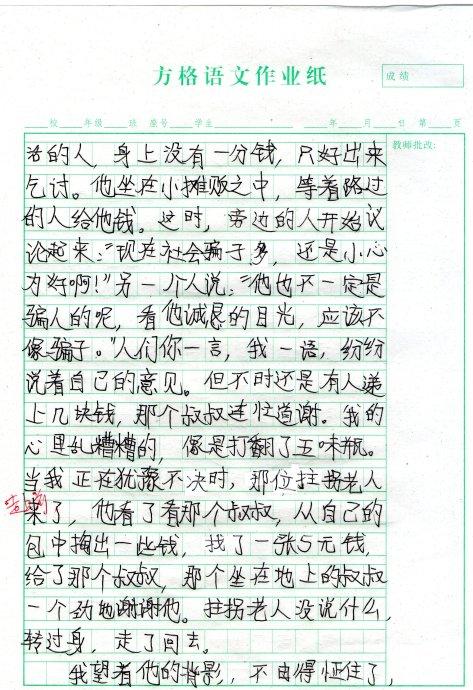 方格语文作业纸
成绩
校 年级 班 座号 学生 年 月 日 第 页
教师批改：
治的人，身上没有一分钱，只好出来
乞讨。他坐在小摊贩之中，等着路过
的人给他钱。这时，旁边的人开始议
论起来：“现在社会骗子多，还是小心
为好啊！”另一个人说：“他也不一定是
骗人的呢，看他诚恳的目光，应该不
像骗子。”人们你一言，我一语，纷纷
说着自己的意见。但不时还是有人递
上几块钱，那个叔叔连忙道谢。我的
心里乱糟糟的，像是打翻了五味瓶。
当我正在犹豫不决时，那位拄拐老人
来了，他看了看那个叔叔，从自己的
包中掏出一些钱，找了一张5元钱，
给了那个叔叔，那个坐在地上的叔叔
一个劲地谢谢他。拄拐老人没说什么，
转过身，走了回去。
我望着他的背影，不由得怔住了，